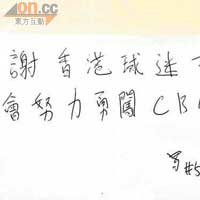 on.cc
東方互動
謝香港球迷
會努力勇闖CB
#5